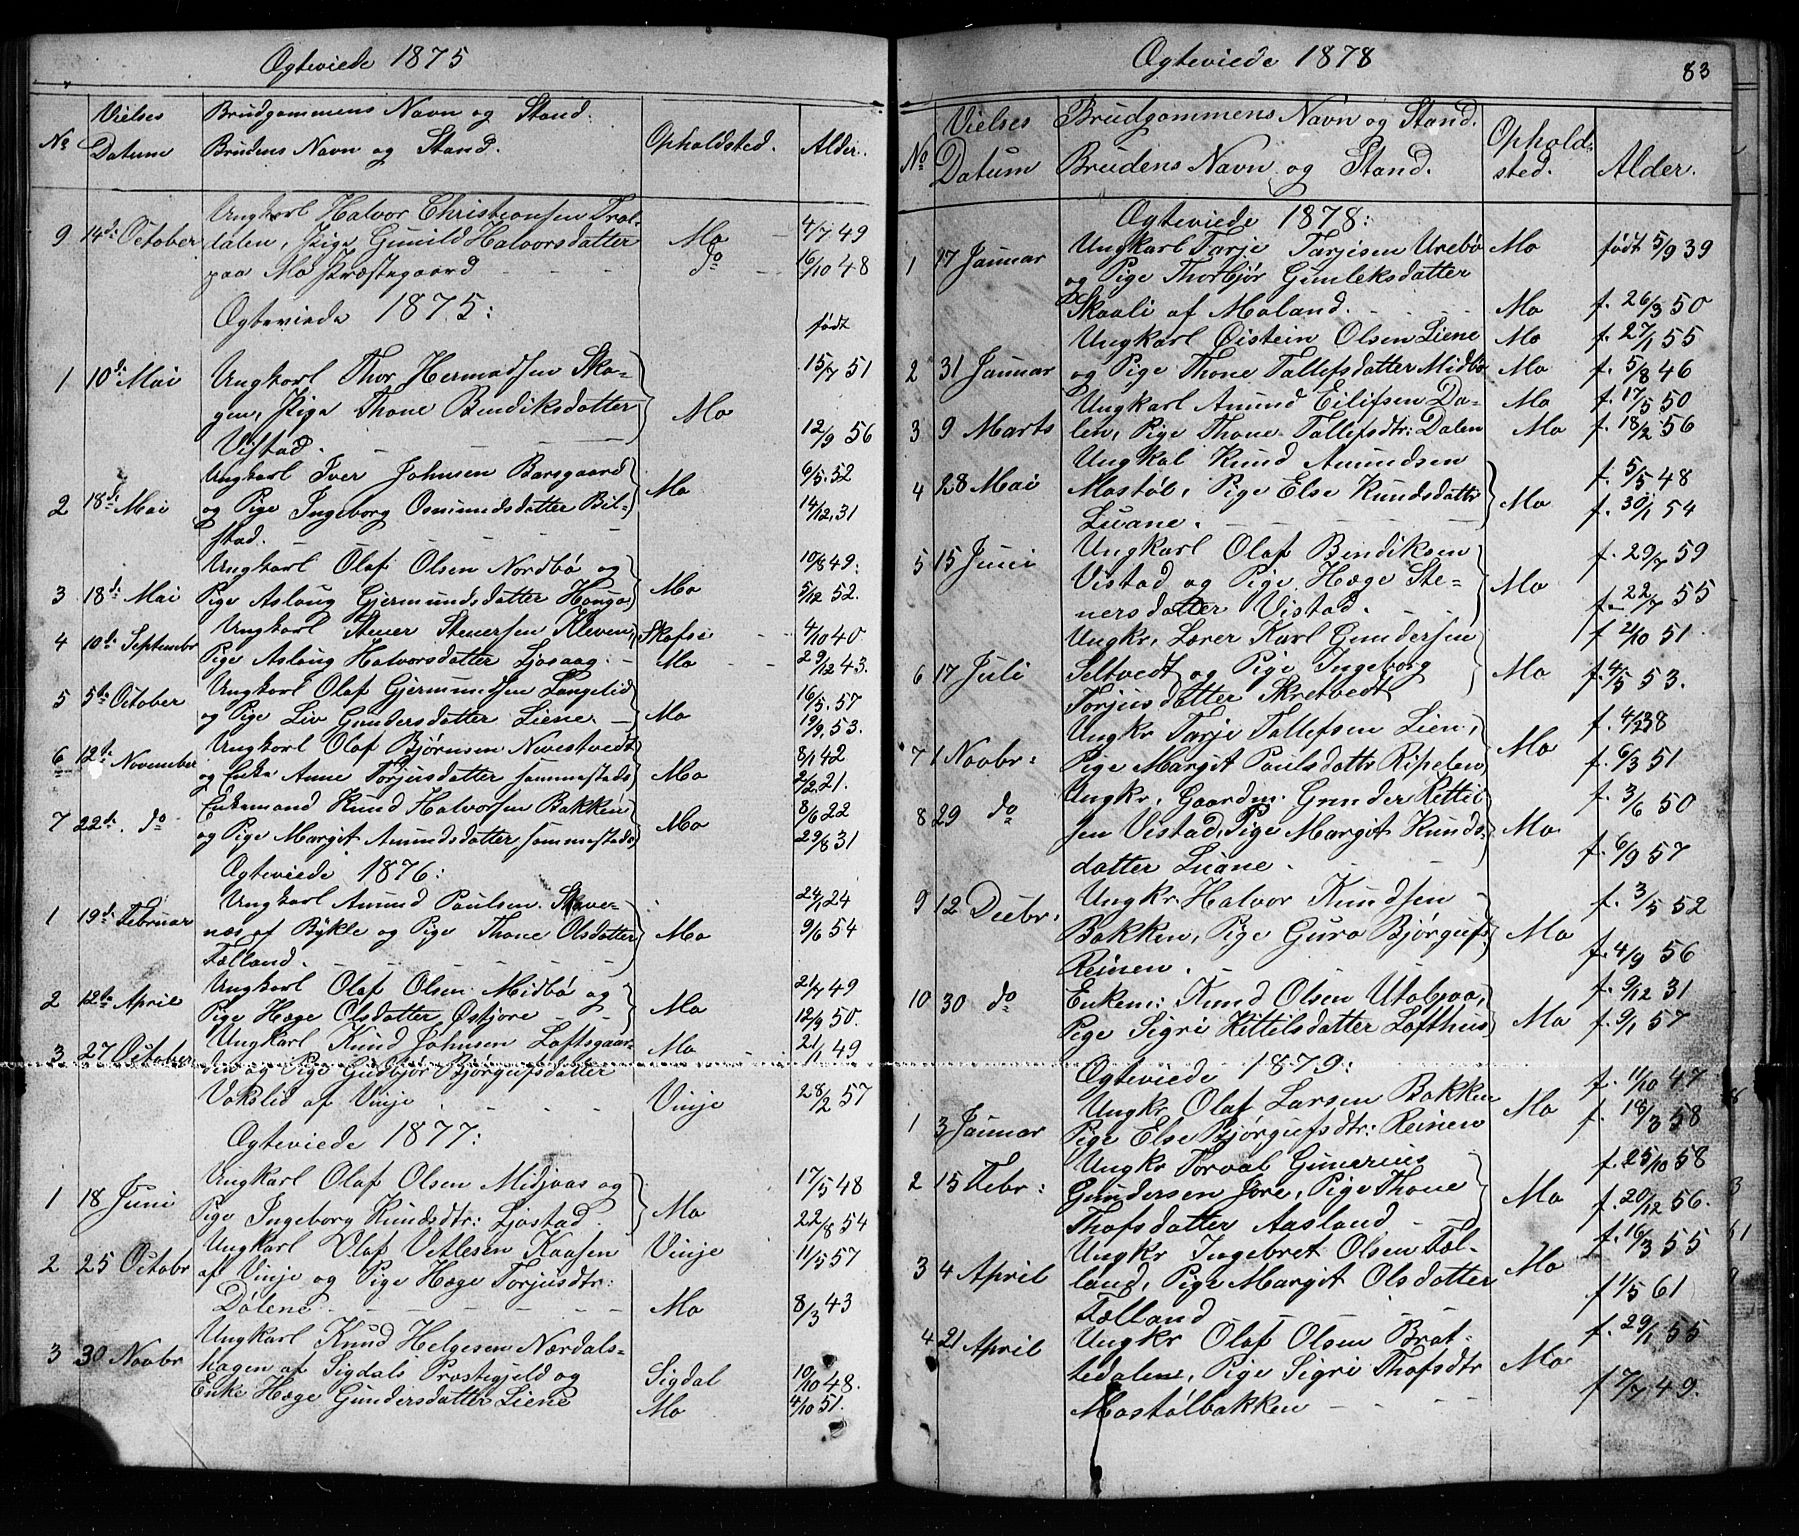 Ogteviede 1875
No Vielses Datum
Brudgommens Navn og Stand.
Brudens Navn og Stand.
Opholdsted. Alder.
9 14de October Ungkarl Halvor Christiansen Træl-
dalen, Pige Gunild Halvorsdatter Mo 4/7 49
paa Mo Præstegaard do 16/10 48
Ogteviede 1875: født
1 10de Mai Ungkarl Thor Hermodsen Ska- 15/7 51
gen, Pige Thone Bendiksdatter Mo
Vistad. 12/9 56
Ungkarl Iver Johnsen Barsgaard 6/5 32
2 18de Mai og Pige Ingeborg Osmundsdatter Bil- Mo 14/12 31
stad.
Ungkarl Olaf Olsen Nordbø og 10/8 49.
3 18de Mai Pige Aslaug Gjermundsdatter Haugo Mo 5/12 52.
4 10de Septembr Ungkarl Stener Stenersen Kleven, Skafse 4/10 40
Pige Aslaug Halvorsdatter Ljosaag. Mo 29/12 43.
5 5te October Ungkarl Olaf Gjermundsen Langelid 16/5 57
og Pige Liv Gundersdatter Liene. Mo 19/9 53.
6 12te November Ungkarl Olaf Bjørnsen Nevestvedt 8/1 42
og Enke Anne Torjusdatter sammestads Mo 2/2 21.
7 22de do Enkemand Knud Halvorsen Bakken 8/6 22
og Pige Margit Amundsdatter sammestads Mo 29/8 31
Ogteviede 1876:
1 19de Februar Ungkarl Amund Paulsen Skave- 24/1 24
næs af Bykle og Pige Thone Olsdatter Mo 9/6 54
Fælland.
2 12te April Ungkarl Olaf Olsen Midbø og 21/7 49
Pige Hæge Olsdatter Østjore Mo 12/9 50.
3 27 October Ungkarl Knud Johnsen Loftsgaar- Mo 21/1 49
den og Pige Gudbjør Bjørgufsdatter
Vakslid af Vinje Vinje 28/2 57
Ogteviede 1877:
1 18 Juni Ungkarl Olaf Olsen Midjaas og 17/5 48
Pige Ingeborg Knudsdtr: Ljostad. Mo 22/8 54
2 25 Octobr Ungkarl Olaf Vetlesen Kaasen Vinje 11/5 57
af Vinje og Pige Hæge Torjusdtr:
Dølene Mo 8/3 43
3 30 Novbr Ungkarl Knud Helgesen Nærdals-
hagen af Sigdals Præstigjeld og Sigdal 10/10 48.
Enke Hæge Gundersdatter Liene Mo 4/10 51.
Ogteviede 1878
83
No Vielses Datum
Brudgommens Navn og Stand.
Brudens Navn og Stand.
Ophold-
sted. Alder.
Ogteviede 1878:
1 17 Januar Ungkarl Tarje Tarjesen Urebø Mo født 5/9 39
og Pige Thorbjør Gunleksdatter
Skaali af Moland. Mo f. 26/3 50
Ungkarl Øistein Olsen Liene Mo f. 27/1 55
2 31 Januar og Pige Thone Tallefsdatter Midbø Mo f. 5/8 46
Ungkarl Amund Eilifsen Da- Mo f. 17/5 50
3 9 Marts len, Pige Thone Tallefsdtr: Dalen Mo f. 18/2 56
Ungkal Knud Amundsen f. 5/5 48
4 28 Mai Mostøl, Pige Else Knudsdattr Mo f. 30/1 54
Luane.
5 15 Juni Ungkarl Olaf Bendiksen f. 29/7 59
Vistad og Pige Hæge Ste- Mo
nersdatter Vistad. f. 22/7 55
Ungkr, Lærer Karl Gundersen f 2/10 51.
6 17 Juli Seltvedt og Pige Ingeborg Mo f. 4/5 53.
Torjusdatter Skretvedt
7 1 Novbr: Ungkr Tarje Tallefsen Lien, Mo f. 4/2 38
Pige Margit Paulsdattr Ripelen f. 6/3 51
8 29 do Ungkr, Gaardm. Gunder Kettil- f. 3/6 50
sen Vistad, Pige Margit Knuds- Mo
datter Luane. f. 6/9 57
9 12 Decbr. Ungkr. Halvor Knudsen f. 3/5 52
Bakken, Pige Guro Bjørgufs Mo
Reinen. f. 4/9 56
10 30 do Enkem: Knud Olsen Utabjaa, f. 9/12 31
Pige Sigri Kittilsdatter Lofthus Mo f. 9/1 57
Ogteviede 1879:
Ungkr Olaf Larsen Bakken Mo f. 11/10 47
1 3 Januar Pige Else Bjørgufsdtr: Reinen f. 18/3 58
Ungkr Torval Gunerius f. 25/10 58
2 15 Febr: Gundersen Jore, Pige Thone Mo f. 20/12 56.
Thofsdatter Aasland
Ungkr Ingebret Olsen Fæl- f. 16/3 55
3 4 April land, Pige Margit Olsdatter Mo
Fælland f 1/5 61
4 21 April Ungkr Olaf Olsen Brat- f. 29/1 55
tedalene, Pige Sigri Thofsdtr Mo
Mostølbakken f 7/7 49.